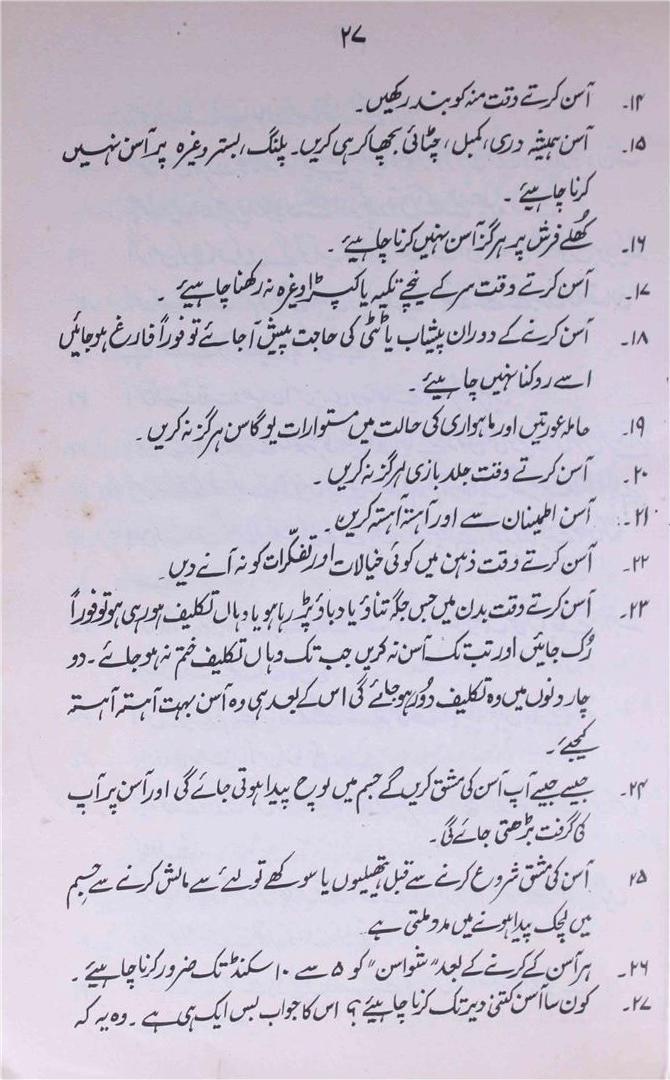 ۲۷
۱۴۔ آسن کرتے وقت منہ کو بند رکھیں۔
۱۵۔ آسن ہمیشہ دری، کمبل، چٹائی بچھا کر ہی کریں۔ پلنگ، بستر وغیرہ پر آسن نہیں
کرنا چاہیئے ۔
۱۶۔ کھُلے فرش پر ہرگز آسن نہیں کرنا چاہیئے ۔
۱۷۔ آسن کرتے وقت سر کے نیچے تکیہ یا کپڑا وغیرہ نہ رکھنا چاہیئے
۱۸۔ آسن کرنے کے دوران پیشاب یا ٹٹی کی حاجت پیش آ جائے تو فوراً فارغ ہو جائیں
اسے روکنا نہیں چاہیئے ۔
۱۹۔ حاملہ عورتیں اور ماہواری کی حالت میں مستوارات یوگاسن ہرگز نہ کریں ۔
۲۰۔ آسن کرتے وقت جلد بازی ہرگز نہ کریں ۔
۲۱۔ آسن اطمینان سے اور آہستہ آہستہ کریں۔
۲۲۔ آسن کرتے وقت ذہن میں کوئی خیالات اور تفکّرات کو نہ آنے دیں۔
۲۳۔ آسن کرتے وقت بدن میں جس جگہ تناؤ یا دباؤ پڑ رہا ہو یا وہاں تکلیف ہو رہی ہو تو فوراً
رُک جائیں اور تب تک آسن نہ کریں جب تک وہاں تکلیف ختم نہ ہو جائے ۔ دو
چار دنوں میں وہ تکلیف دُور ہو جائے گی اس کے بعد ہی وہ آسن بہت آہستہ آہستہ
کیجئے ۔
۲۴۔ جیسے جیسے آپ آسن کی مشق کریں گے جسم میں لوچ پیدا ہوتی جائے گی اور آسن پر آپ
کی گرفت بڑھتی جائے گی۔
۲۵۔ آسن کی مشق شروع کرنے سے قبل ہتھیلیوں یا سوکھے تولئے سے مالش کرنے سے جسم
میں لچک پیدا ہونے میں مدد ملتی ہے۔
۲۶۔ ہر آسن کے کرنے کے بعد "شواسن" کو ۵ سے ۱۰ سکنڈ تک ضرور کرنا چاہیئے ۔
۲۷۔ کون سا آسن کتنی دیر تک کرنا چاہیئے؟ اس کا جواب بس ایک ہی ہے ۔ وہ یہ کہ